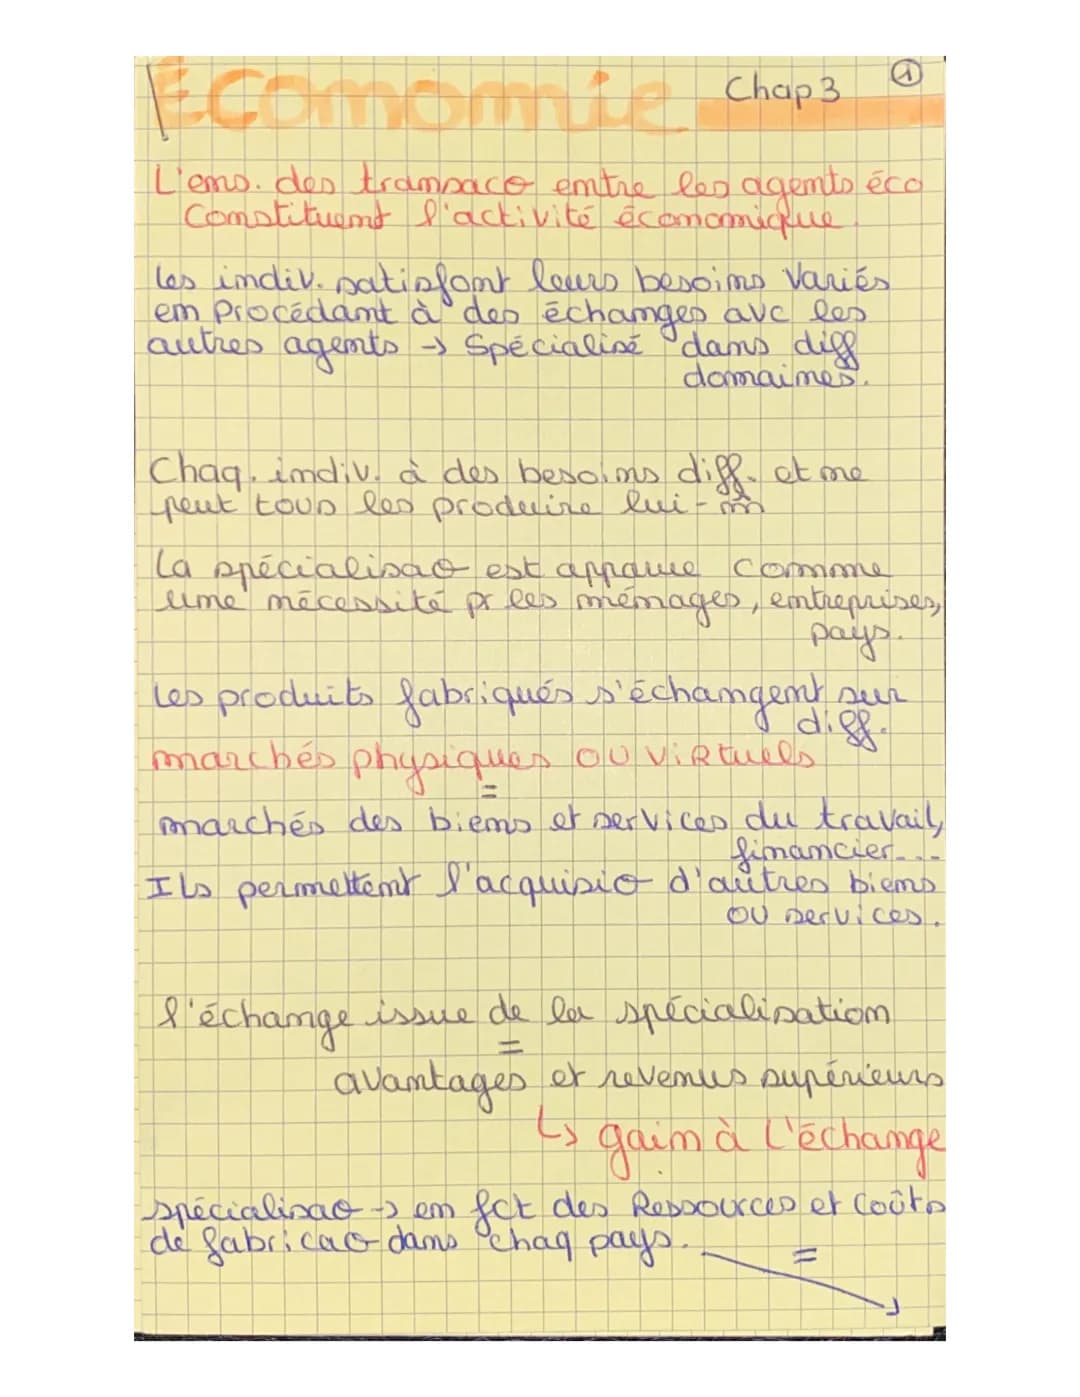 Économie Chap 3 ①
L'ens. des transac° entre les agents éco
Constituent l'activité économique.
les indiv. satisfont leurs besoins variés
en Procédant à des échanges avc les
autres agents → Spécialisé dans diff
domaines.
Chaq. indiv. à des besoins diff. et ne
peut tous les produire lui-m̂
La spécialisa° est apparue comme
une nécessité pr les ménages, entreprises,
pays.
Les produits fabriqués s'échangent sur
diff.
marchés physiques OU virtuels
=
marchés des biens et services du travail,
financier...
Ils permettent l'acquisi° d'autres biens
OU services.
l'échange issue de la spécialisation
=
avantages et revenus supérieurs
↳ gain à l'échange
spécialisa° → en fct des Ressources et Coûts
de fabrica° dans chaq pays.
=